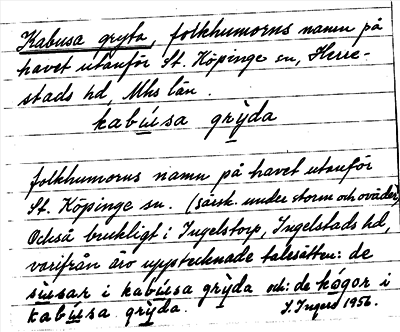 Kabusa gryta, folkhumorns namn på
havet utanför St. Köpinge sn, Herre-
stads hd, Mhs län.
kabu̲sa gry̲da
folkhumorns namn på havet utanför
St. Köpinge sn. (särsk. under storm och oväder)
Också brukligt i Ingelstorp, Ingelstads hd,
varifrån äro upptecknade talesätten: de
su̲sar i kabu̲sa gry̲da och: de kógor i
kabu̲sa gry̲da. S. Ingers 1956.